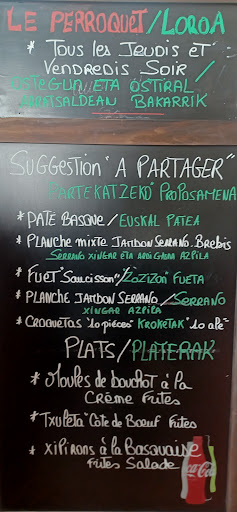 LE PERROQUET/LOROA
* Tous les Jeudis et
Vendredis Soir /
OSTEGUN ETA OSTIRAL
ARRATSALDEAN BAKARRIK
SUGGESTION "A PARTAGER"
PARTEKATZEKO PROPOSAMENA
* PATE BASQUE / EUSKAL PATEA
* PLANCHE mixte JAMBON SERRANO. Brebis
SERRANO XINGAR ETA ARDI GASNA AZPILA
* FUET "Saucisson"/"LOZIZOA" FUETA
* PLANCHE JAMBON SERRANO/SERRANO
XINGAR AZPILA
* CROQUETAS "10 pièces" KROKETAK "10 ale"
PLATS/PLATERAK
* Moules de bouchot à la
Crème Frites
* Txuleta "Côte de Boeuf" Frites
* XiPiRONS à la Basquaise
Frites Salade
Coca-Cola